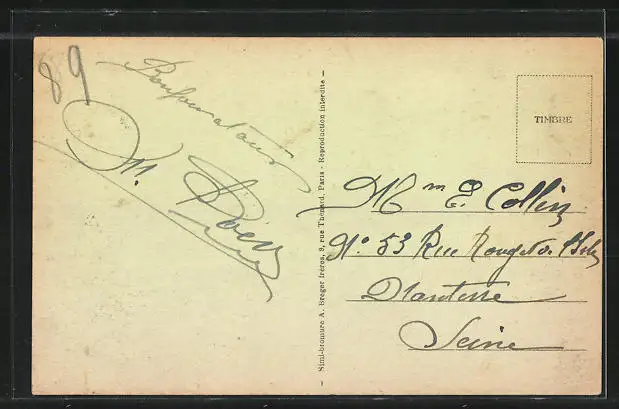 89
M.
Simili-bromure A. Breger frères, 9, rue Thénard, Paris - Reproduction interdite -
TIMBRE
Mme E. Collin
No 53 Rue Rouget de
Nanterre
Seine